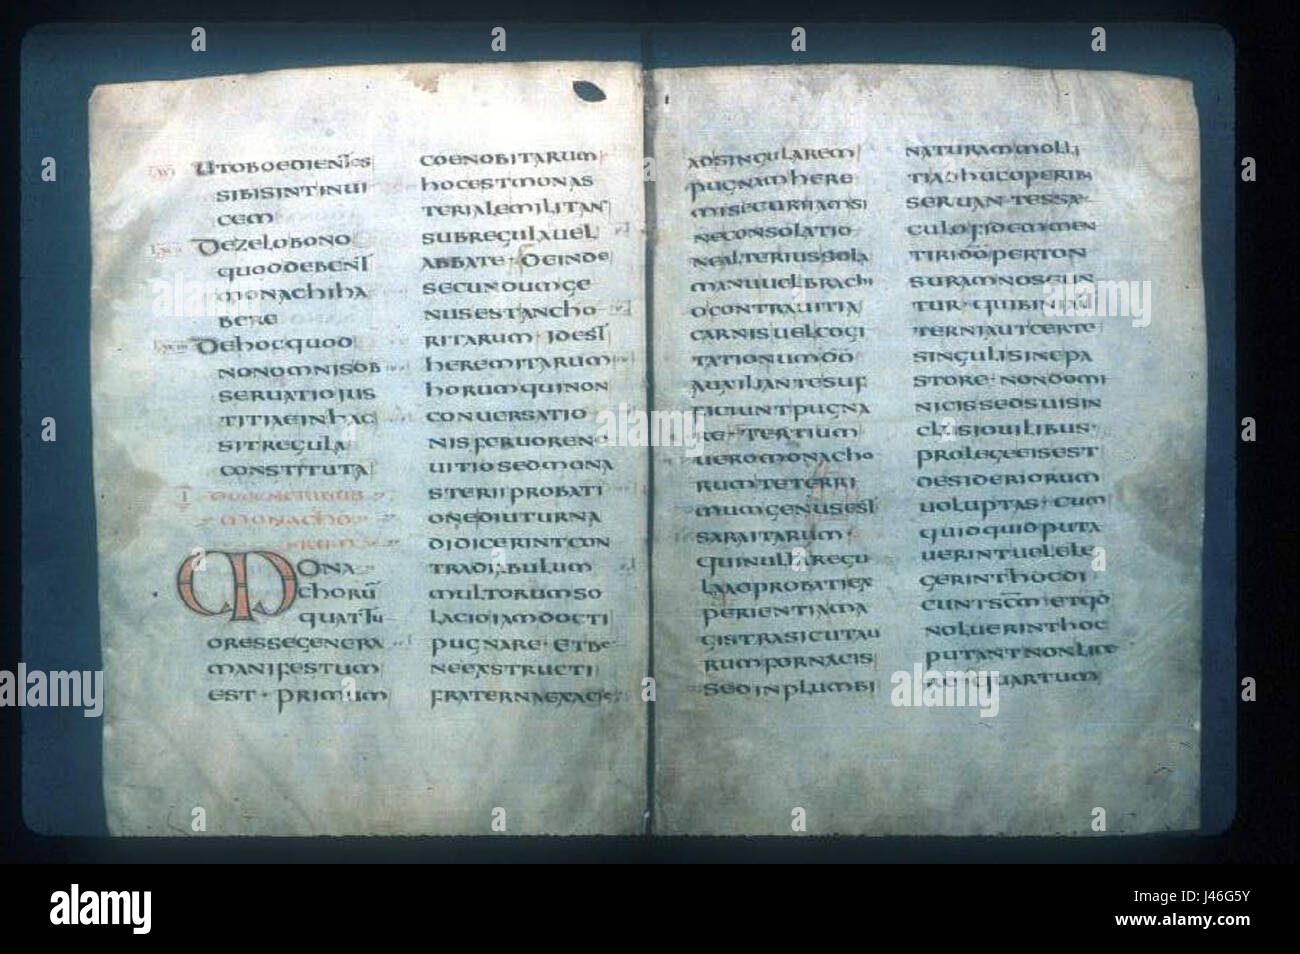 UTOBOEDIENTES
SIBISINTINUI
CEM
DEZELOBONO
QUODDEBENT
MONACHIHA
BERE
DEHOCQUOD
NONOMNISOB
SERUATIOIUS
TITIAEINHAC
SITREGULA
CONSTITUTA
I DEGENERIBUS
MONACHO
RUM
MONA
CHORŪ
QUATTU
ORESSEGENERA
MANIFESTUM
EST · PRIMUM
COENOBITARUM
HOCESTMONAS
TERIALEMILITANS
SUBREGULAUEL
ABBATE · DEINDE
SECUNDUMGE
NUSESTANCHO
RITARUM · IDEST
HEREMITARUM
HORUMQUINON
CONUERSATIO
NISFERUORENO
UITIOSEDMONA
STERIIPROBATI
ONEDIUTURNA
DIDICERINTCON
TRADIABULUM
MULTORUMSO
LACIOIAMDOCTI
PUGNARE · ETBE
NEEXSTRUCTI
FRATERNAEXACIE
ADSINGULAREM
PUGNAMHERE
MISECURIIAMSI
NECONSOLATIO
NEALTERIUSSOLA
MANUUELBRACHI
OCONTRAUITIA
CARNISUELCOGI
TATIONUMDO
AUXILIANTESUF
FICIUNTPUGNA
RE · TERTIUM
UEROMONACHO
RUMTETERRI
MUMGENUSEST
SARAITARUM ·
QUINULLAREGU
LAADPROBATIEX
PERIENTIAMA
GISTRASICUTAU
RUMFORNACIS
SEDINPLUMBI
NATURAMMOLLI
TIADHUCOPERIB
SERUANTESSA
CULOFIDEMMEN
TIRIDŌPERTON
SURAMNOSCUN
TUR · QUIBINIAUT
TERNIAUTCERTE
SINGULISINEPA
STORE · NONDOMI
NICISSEDSUISIN
CLUSIOUILIBUS ·
PROLEGEEISEST
DESIDERIORUM
UOLUPTAS · CUM
QUIDQUIDPUTA
UERINTUELELE
GERINTHOCDI
CUNTSCM · ETQD
NOLUERINTHOC
PUTANTNONLICE
RE · QUARTUM
alamy
Image ID: J46G5Y
www.alamy.com